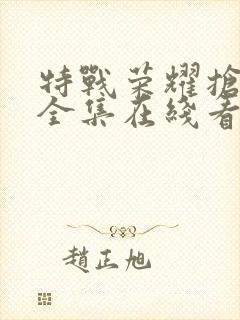 特戰荣耀搶
全集在綫看
趙正旭